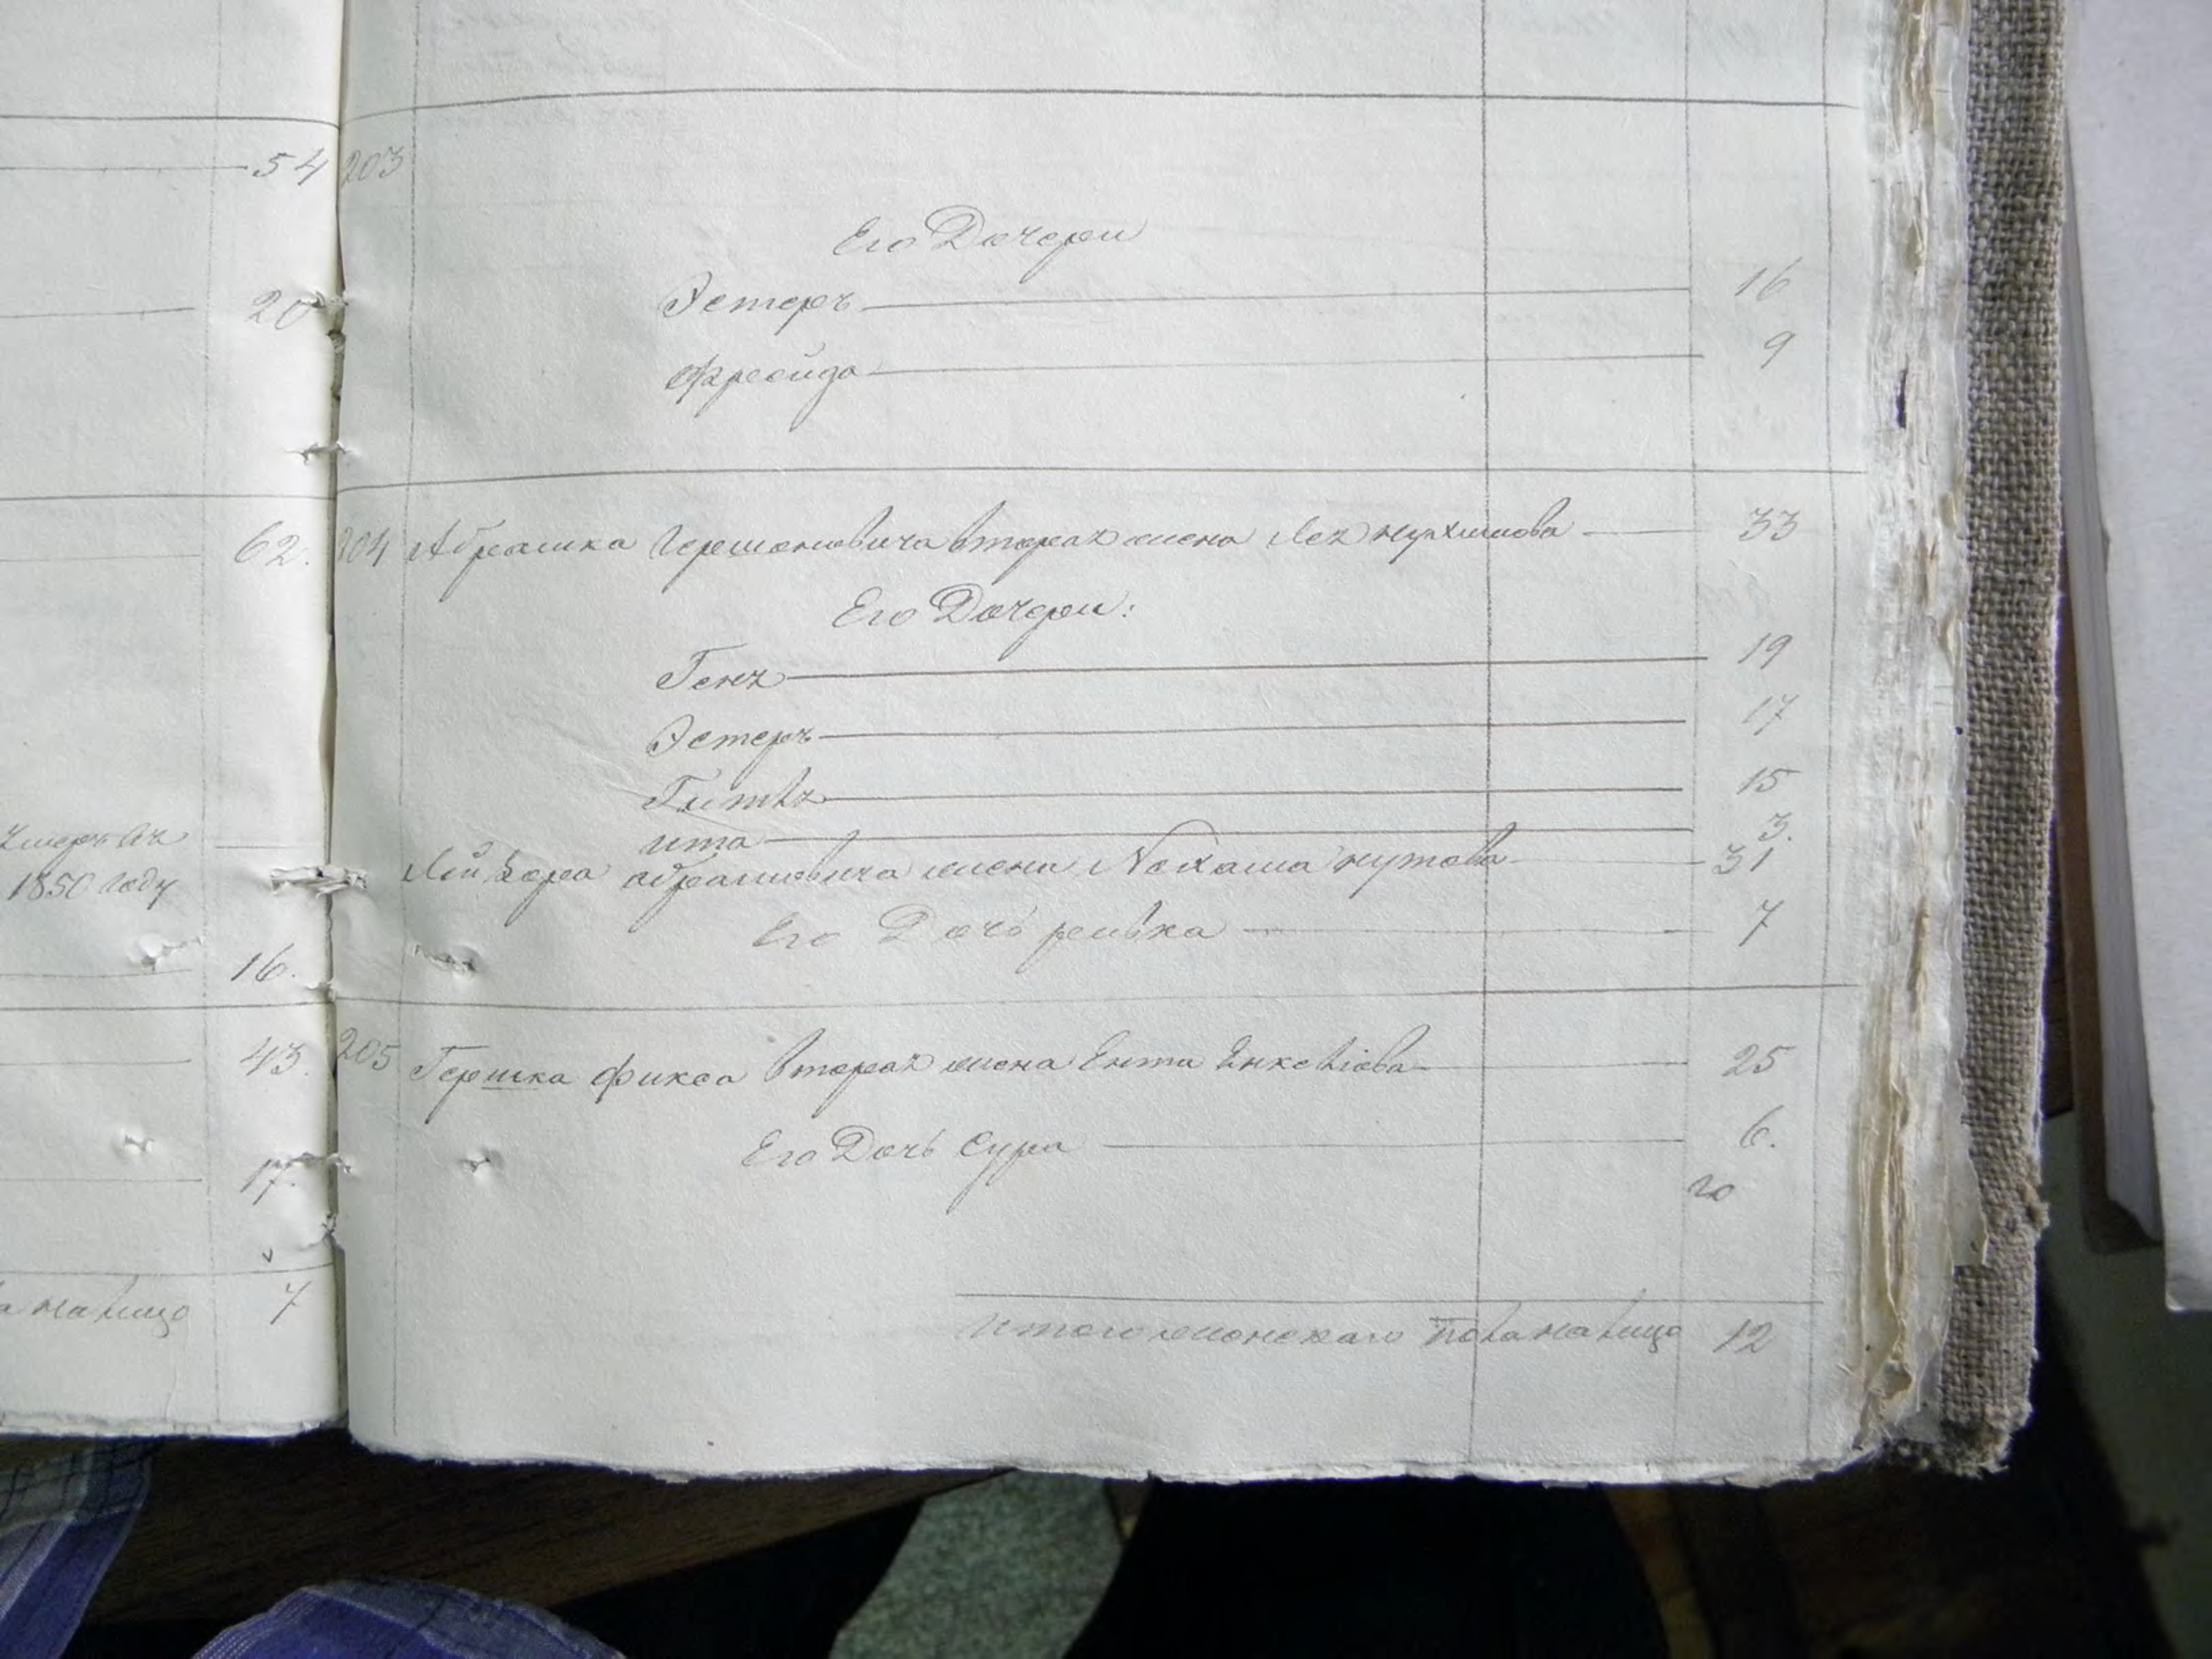 54
20
62.
Умеръ въ
1850 году
16.
43.
17.
на лицо 7
203
Его Дочери
Эстеръ 16
Фрейда 9
204 Абрашка Гершоновича вторая жена Лея 33
Его Дочери:
Геня 19
Эстеръ 17
Гитля 15
ита 3.
Лейзера абрамовича жена Нехама нутова 31
Его Дочь ривка 7
205 Гершка Фикса вторая жена Ента Янкелiова 25
Его Дочь Сура 6.
итого женскаго пола на лицо 12